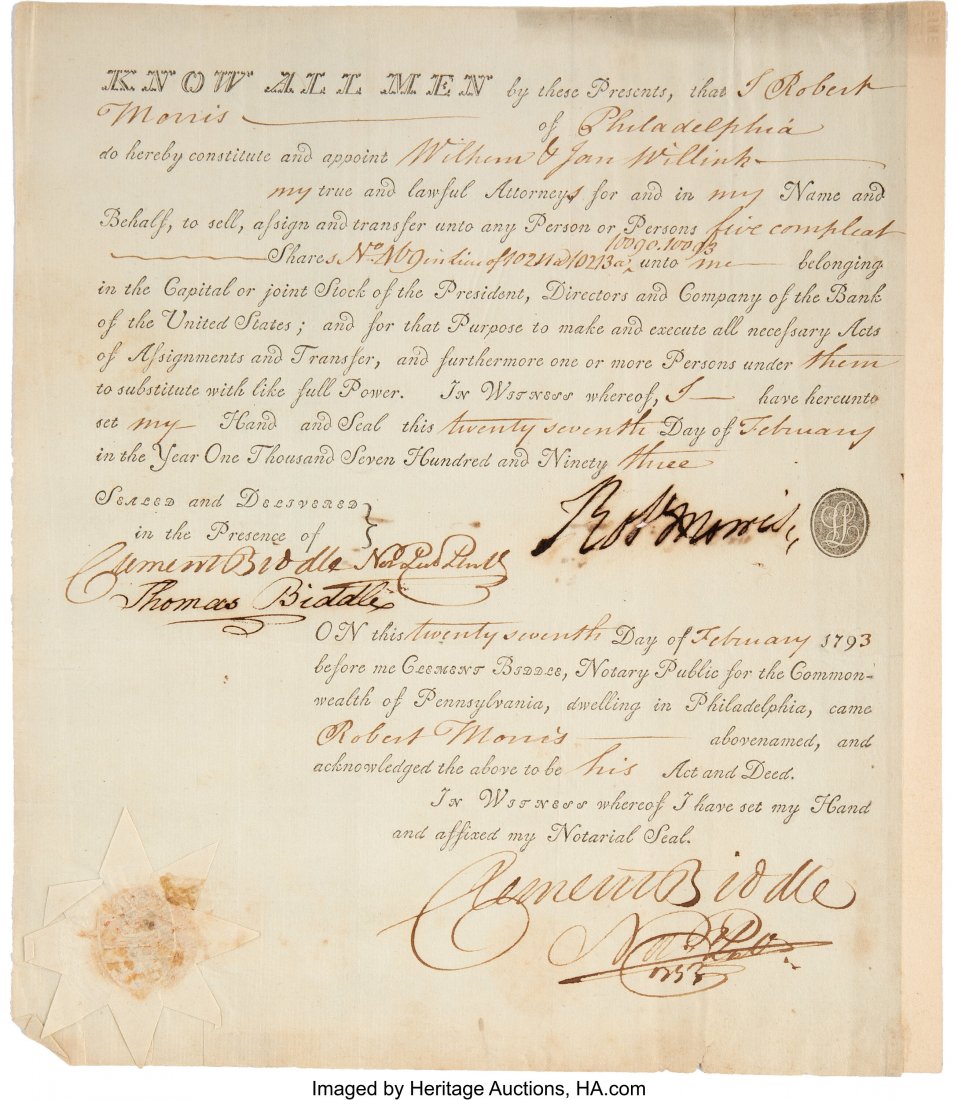 KNOW ALL MEN by these Presents, that I Robert
Morris of Philadelphia
do hereby constitute and appoint Wilhem & Jan Willink
my true and lawful Attorneys for and in my Name and
Behalf, to sell, assign and transfer unto any Person or Persons five compleat
10090.10093
Shares No 469 in lieu of 10211 a 10213 a unto me belonging
in the Capital or joint Stock of the President, Directors and Company of the Bank
of the United States; and for that Purpose to make and execute all necessary Acts
of Assignments and Transfer, and furthermore one or more Persons under them
to substitute with like full Power. IN WITNESS whereof, I have hereunto
set my Hand and Seal this twenty seventh Day of February
in the Year One Thousand Seven Hundred and Ninety three
SEALED and DELIVERED
in the Presence of
Robt Morris
Clement Biddle Not Pub
Thomas Biddle
ON this twenty seventh Day of February 1793
before me CLEMENT BIDDLE, Notary Public for the Common-
wealth of Pennsylvania, dwelling in Philadelphia, came
Robert Morris abovenamed, and
acknowledged the above to be his Act and Deed.
IN WITNESS whereof I have set my Hand
and affixed my Notarial Seal.
Clement Biddle
Not Pub
1793
Imaged by Heritage Auctions, HA.com